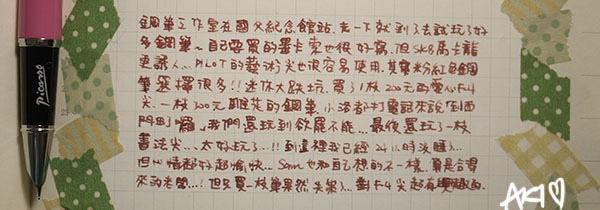 鋼筆工作室在國父紀念館站,走一下就到了去試玩了好
多鋼筆~自己要買的畢卡索也很好寫,但SKB馬卡龍
更誘人...PILOT的藝術尖也很容易使用,其實粉紅色鋼
筆選擇很多!!迷你大跌坑,買了1枝200元的愛心F-4
尖、一枝300元雕花的鋼筆,小洛都打電話來說「到西
門町囉」我們還玩到欲罷不能...最後還玩了一枝
書法尖...太好玩了...!!到這裡我已經24小時沒睡)...
但心情超好超愉快...Sam也和自己想的不一樣,算是合得
來的老闆...!但多買一枝筆果然失策)...對F-4尖超有興趣
Picasso
AKI